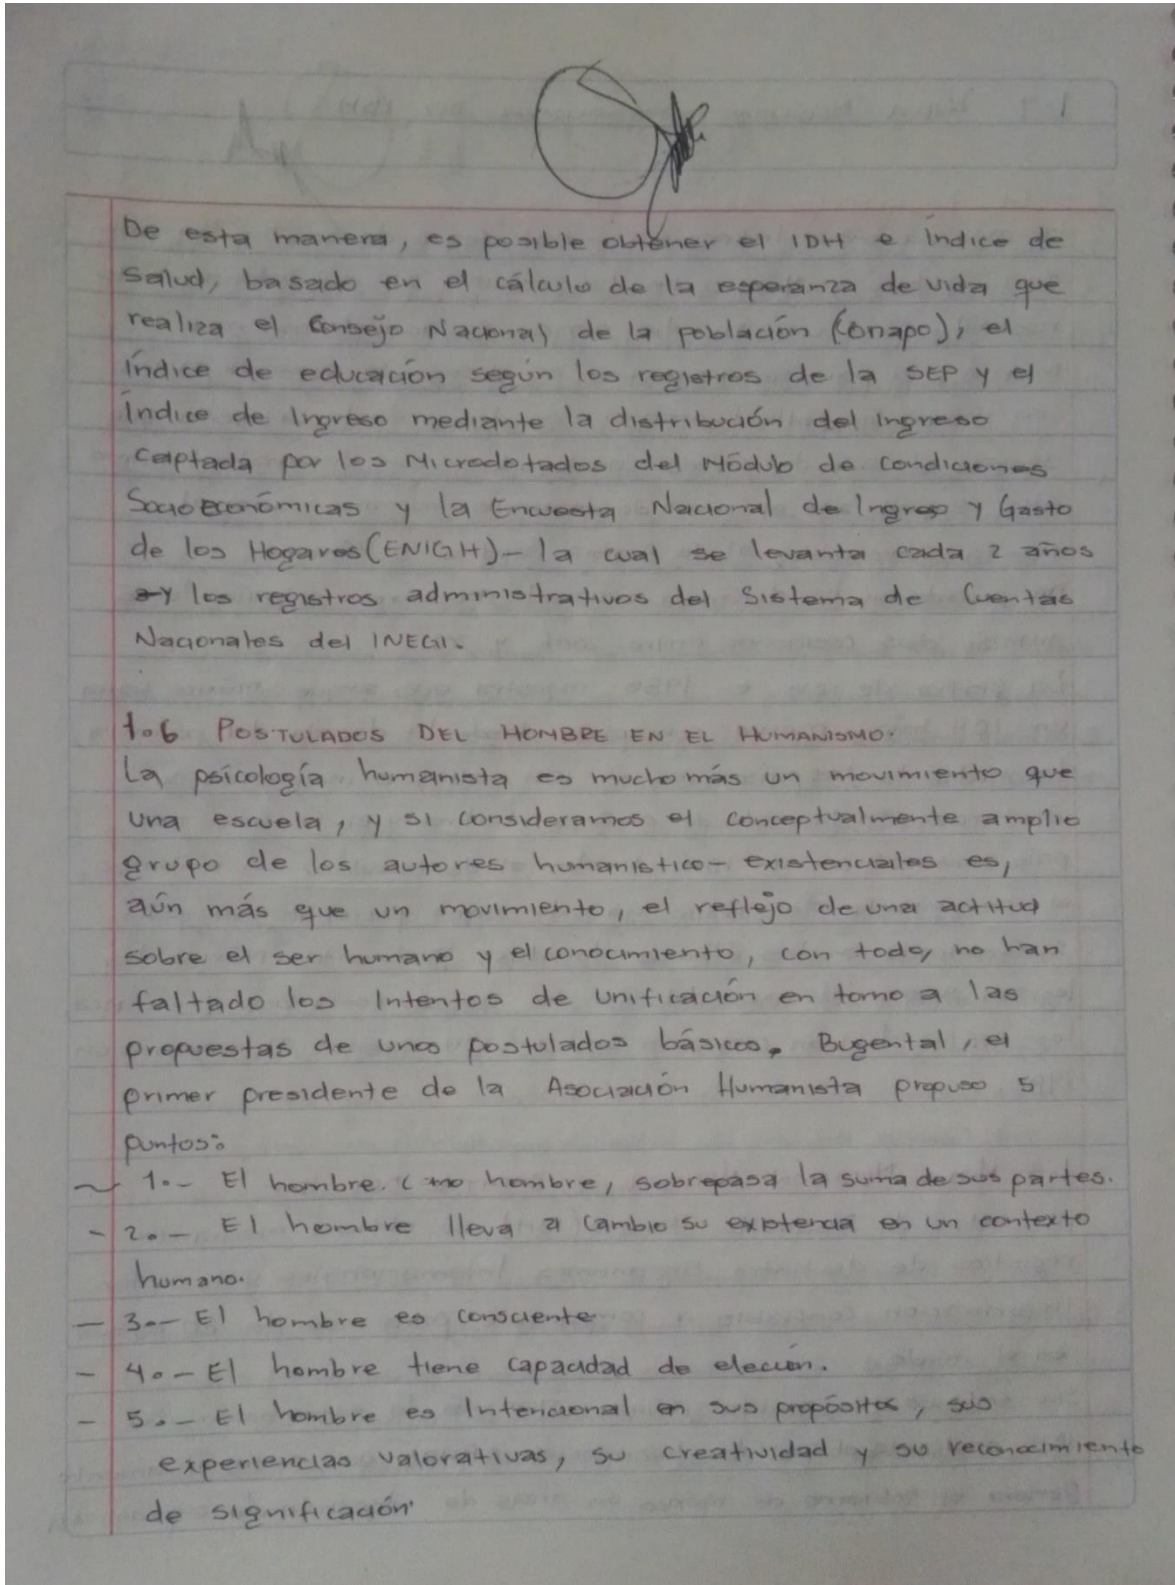 De esta manera, es posible obtener el IDH e índice de
Salud, basado en el cálculo de la esperanza de vida que
realiza el Consejo Nacional de la población (Conapo), el
índice de educación según los registros de la SEP y el
índice de Ingreso mediante la distribución del Ingreso
Captada por los Microdotados del Módulo de Condiciones
Socioeconómicas y la Encuesta Nacional de Ingreso y Gasto
de los Hogares (ENIGH) - la cual se levanta cada 2 años
-y los registros administrativos del Sistema de Cuentas
Nacionales del INEGI.
1.6 POSTULADOS DEL HOMBRE EN EL HUMANISMO.
La psicología humanista es mucho más un movimiento que
una escuela, y si consideramos el conceptualmente amplio
grupo de los autores humanistico- existenciales es,
aún más que un movimiento, el reflejo de una actitud
sobre el ser humano y el conocimiento, con todo, no han
faltado los Intentos de unificación en torno a las
propuestas de unos postulados básicos. Bugental, el
primer presidente de la Asociación Humanista propuso 5
puntos:
1.- El hombre. Como hombre, sobrepasa la suma de sus partes.
- 2.- El hombre lleva a Cambio su existencia en un contexto
humano.
- 3.- El hombre es consciente
- 4.- El hombre tiene capacidad de elecion.
- 5.- El hombre es Intencional en sus propósitos, sus
experiencias valorativas, su creatividad y su reconocimiento
de significación.